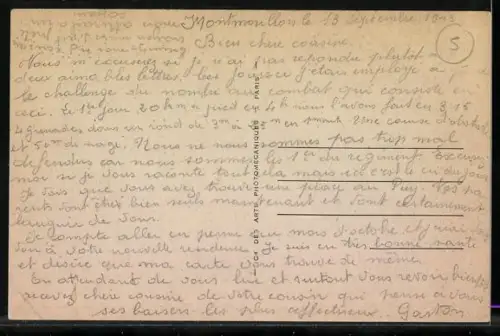 Montmorillon le 13 Septembre 1943
Bien chère cousine
Vous m'excuserez si je n'ai pas répondu plutôt à
deux aimables lettres. Ces jours ci j'étais employé à
le challenge du nombre au combat qui consiste en
ceci. Le 1er jour 20 km à pied en 4h nous l'avons fait en 3h15
4 grenades dans un rond de 3m à m en 1 minute. Une course d'obstacle
et 50m de nage. Nous ne nous sommes pas trop mal
défendus car nous sommes les 1er du régiment. Excusez
moi si je vous raconte tout cela mais ici c'est le cri du jour
Je vois que vous avez trouvé une place au Puy. Vos pa-
rents vont être bien seuls maintenant et vont certainement
languir de vous.
Je compte aller en perme au mois d'octobre et j'irai
voir à votre nouvelle résidence. Je suis en très bonne santé
et désire que ma carte vous trouve de même.
En attendant de vous lire et surtout vous revoir bientôt
recevez chère cousine de votre cousin qui pense à vous
ses baisers les plus affectueux. Gaston
DOCK DES ARTS PHOTOMECANIQUES PARIS
5